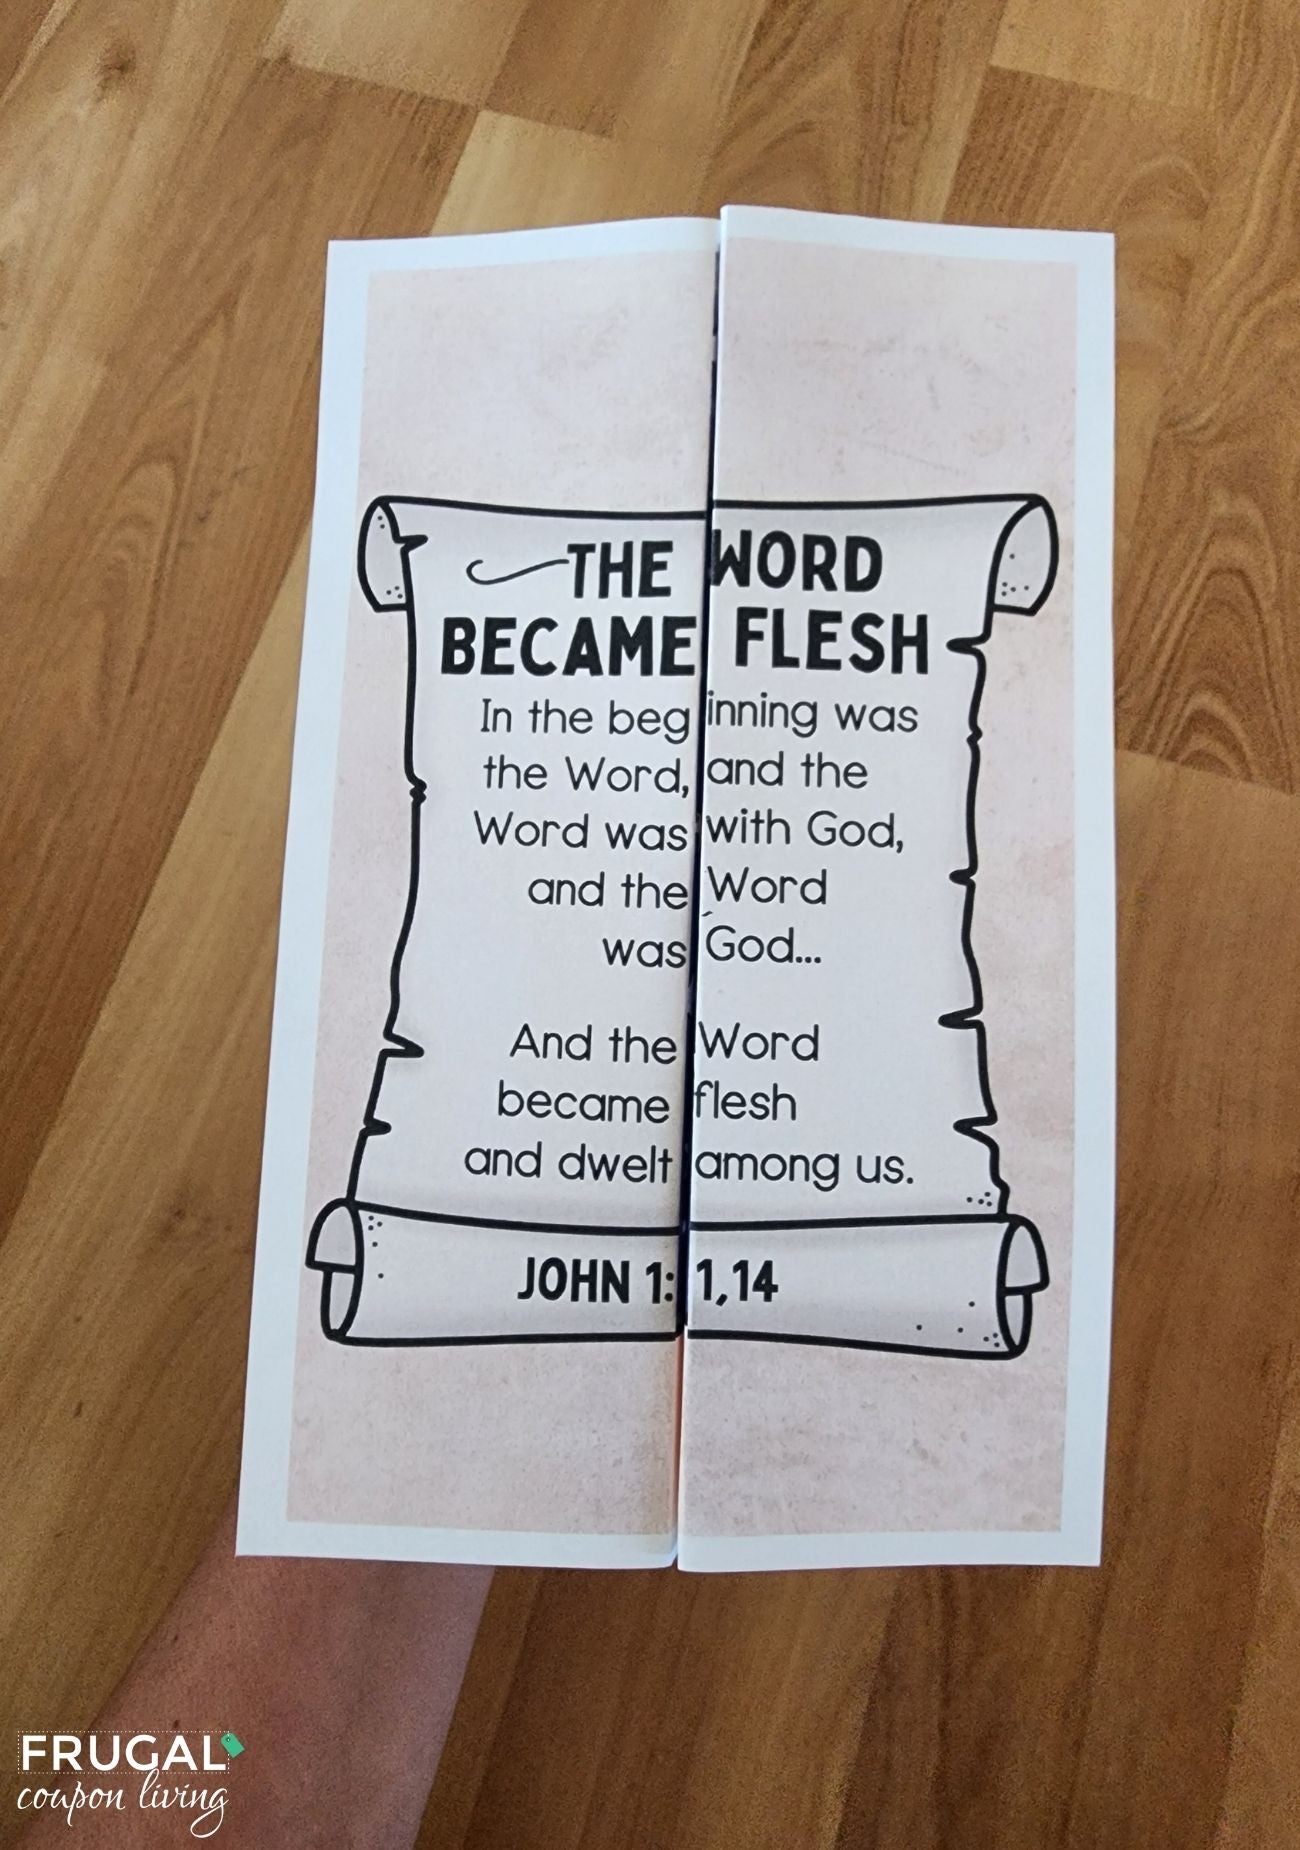 THE WORD
BECAME FLESH
In the beginning was
the Word, and the
Word was with God,
and the Word
was God...
And the Word
became flesh
and dwelt among us.
JOHN 1:1,14
FRUGAL
coupon living